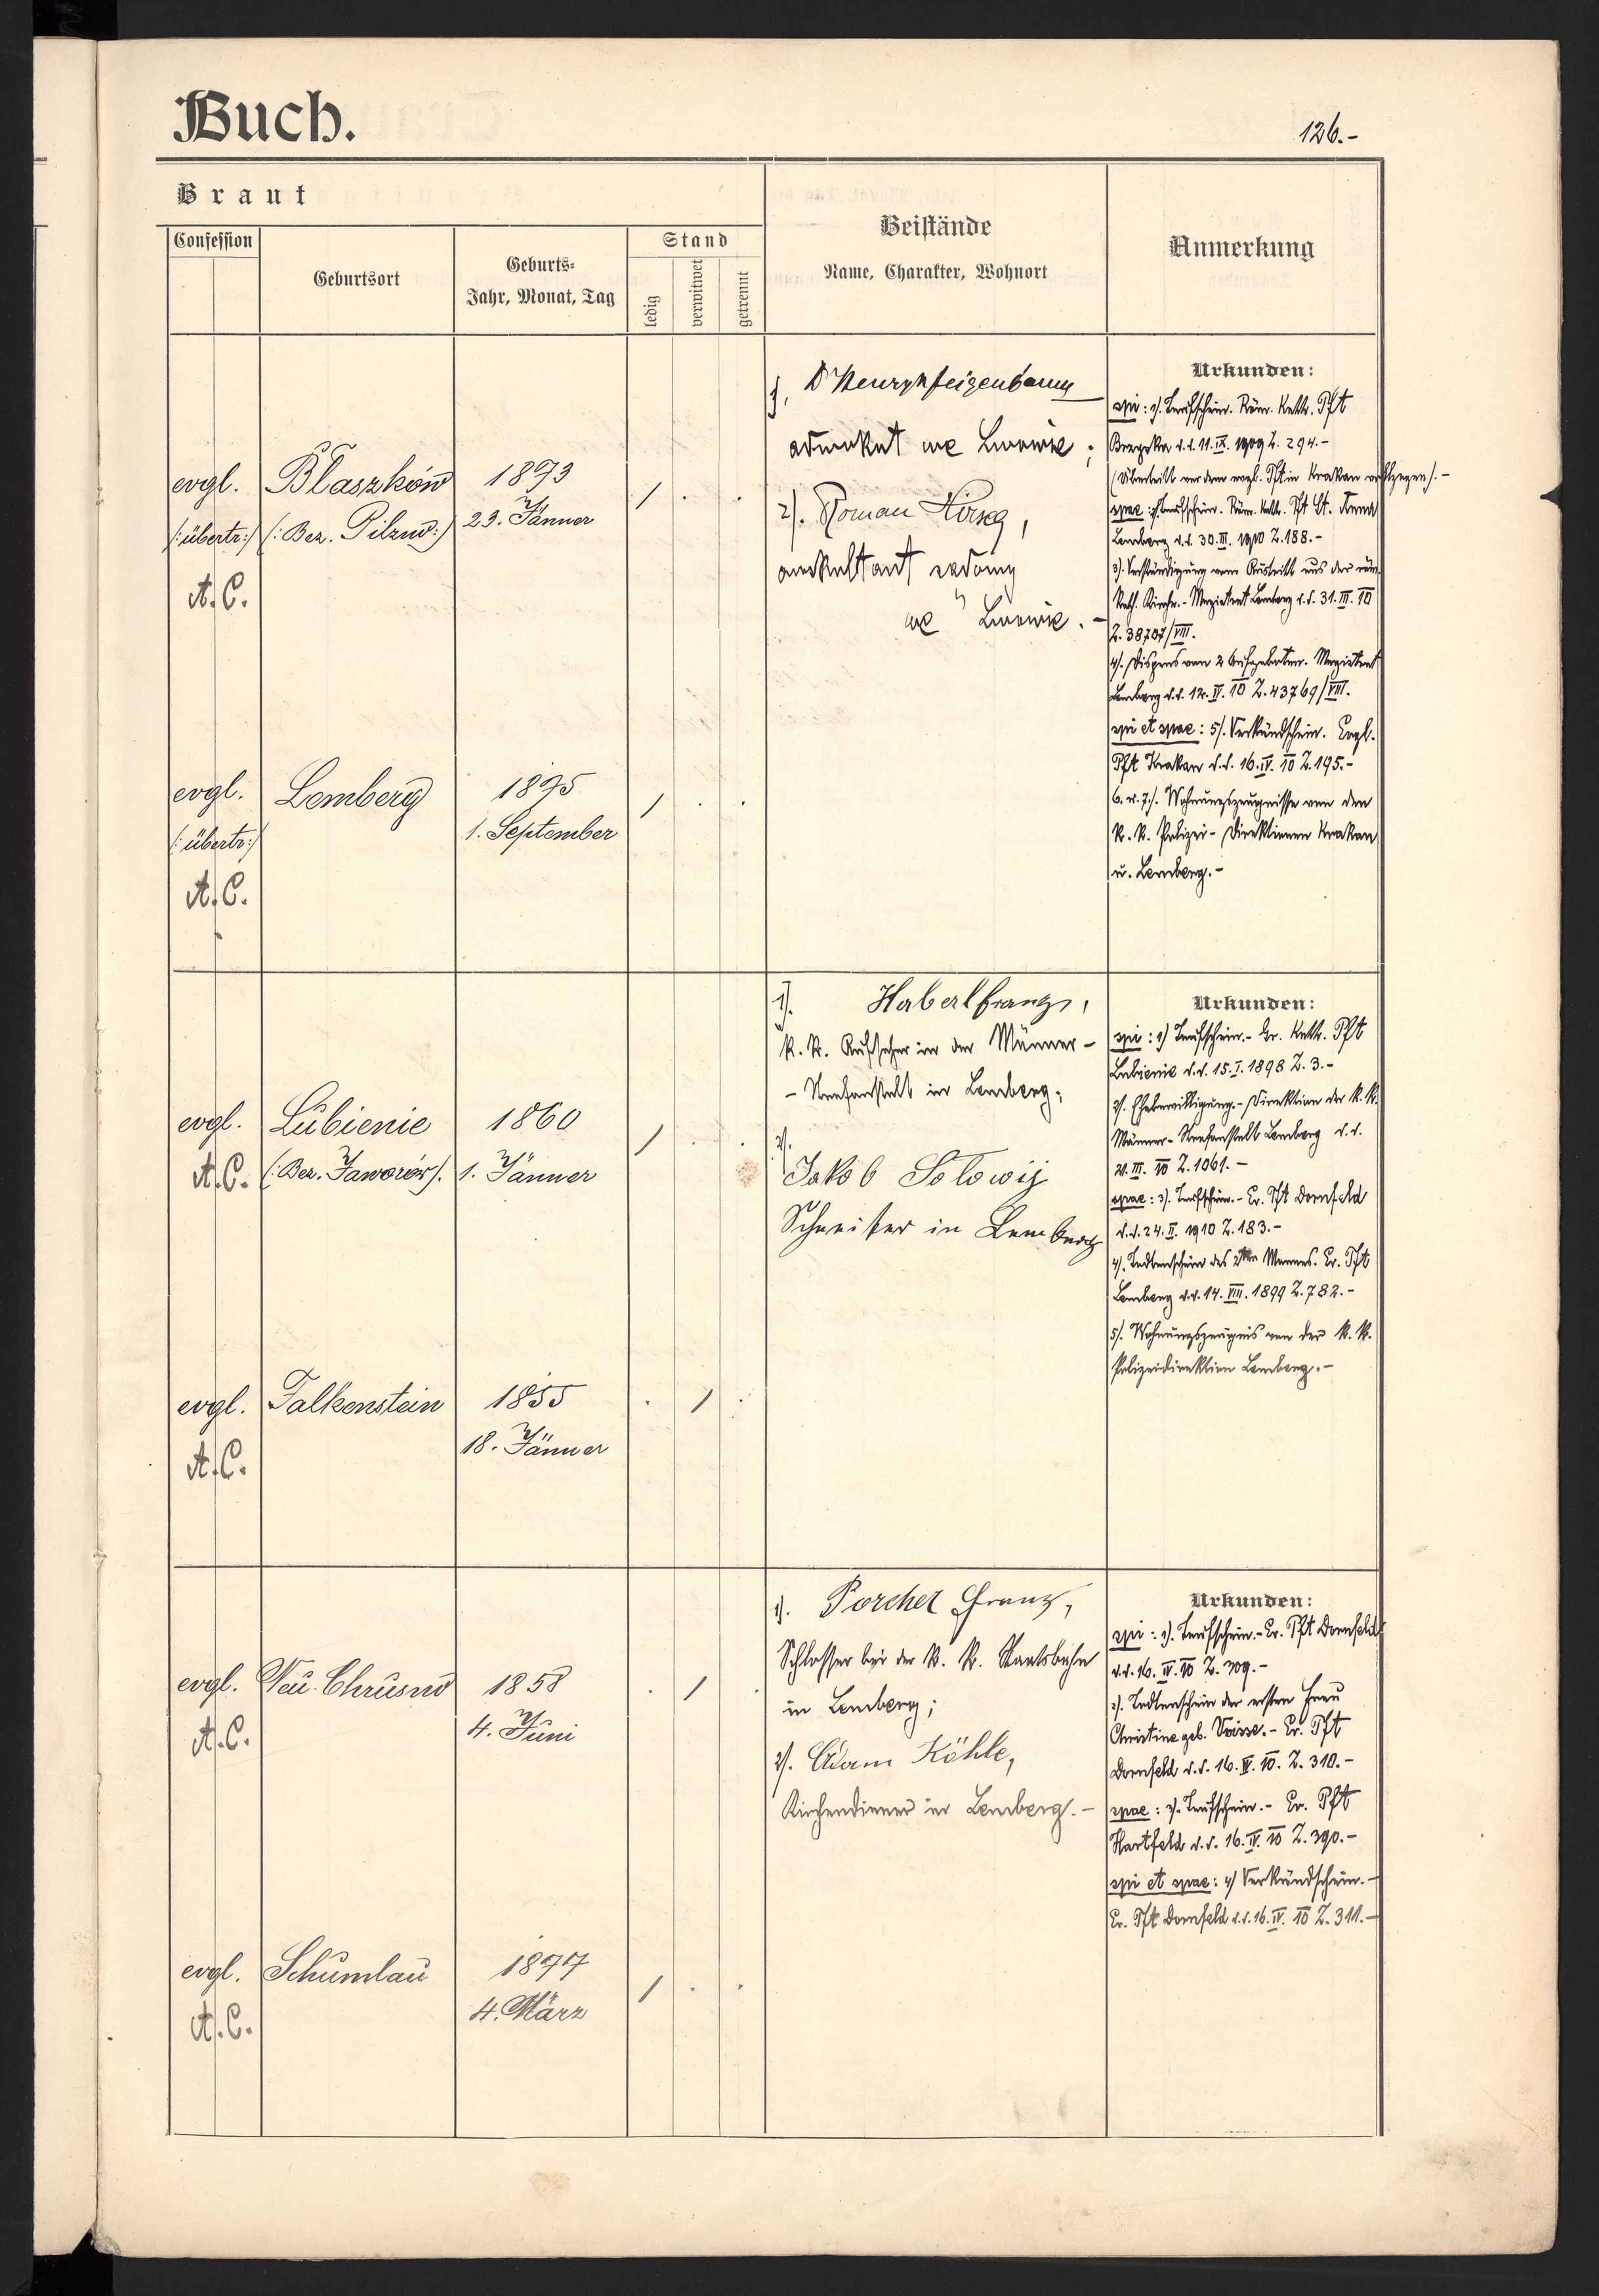 Buch.
126.-
Braut
Confession
Geburtsort
Geburts-
Jahr, Monat, Tag
Stand
ledig
verwitwet
getrennt
Beistände
Name, Charakter, Wohnort
Anmerkung
evgl.
(:übertr:)
A.C.
Błaszków
(: Bez. Pilzno:)
1873
23. Jänner
/ . .
1). Dr Henryk Feigenbaum
adwokat we Lwowie ;
2). Roman
auskultant sądowy
we Lwowie. -
Urkunden:
spi : 1). Taufschein. Röm. Kath. Pft
d.d. 11. IX. 1909 Z. 294.-
(Übertritt vor dem evgl. Pft in Krakau vollzogen). -
spae : 2). Taufschein. Röm. kath. Pft St. Anna
Lemberg d.d. 30. III. 1910 Z. 188.-
3). Verständigung vom Austritt aus der röm.
kath. Kirche. - Magistrat Lemberg d.d. 31. III. 10
Z. 38707/VIII.
4). Dispens von 2 Aufgeboten. Magistrat
Lemberg d.d. 12. IV. 10 Z. 43769/VIII.
spi et spae : 5). Verkündschein. Evgl.
Pft Krakau d.d. 16. IV. 10 Z. 195.-
6. u. 7.). Wohnungszeugnisse von den
k. k. Polizei - Direktionen Krakau
u. Lemberg. -
evgl.
(:übertr:)
A.C.
Lemberg
1875
1. September
/ . .
evgl.
A.C.
Lubienie
(: Bez. Jaworów).
1860
1. Jänner
/ . .
1). Haberl Franz,
k. k. Aufseher in der Männer -
- Strafanstalt in Lemberg;
2).
Jakob Solowij
Schneider in Lemberg
Urkunden:
spi : 1) Taufschein. - Gr. Kath. Pft
Lubienie d.d. 15. I. 1898 Z. 3.-
2). Ehebewilligung. - Direktion der k. k.
Männer - Strafanstalt Lemberg d.d.
21. III. 10 Z. 1061. -
spae : 3). Taufschein. - Ev. Pft Dornfeld
d.d. 24. II. 1910 Z. 183.-
4). Todtenschein des 2ten Mannes. Ev. Pft
Lemberg d.d. 14. VIII. 1899 Z. 782.-
5). Wohnungszeugnis von der k. k.
Polizeidirektion Lemberg. -
evgl.
A.C.
Falkenstein
1855
18. Jänner
. / .
evgl.
A.C.
Neu-Chrusno
1858
4. Juni
. / .
1). Porchet Franz,
Schlosser bei der k. k. Staatsbahn
in Lemberg;
2). Adam Köhle,
Kirchendiener in Lemberg. -
Urkunden:
spi : 1). Taufschein. - Ev. Pft Dornfeld
d.d. 16. IV. 10 Z. 309.-
2). Todtenschein der ersten Frau
Christine geb. - Ev. Pft
Dornfeld d.d. 16. IV. 10. Z. 310.-
spae : 3). Taufschein. - Ev. Pft
Hartfeld d.d. 16. IV. 10 Z. 390.-
spi et spae : 4) Verkündschein. -
Ev. Pft Dornfeld d.d. 16. IV. 10 Z. 311.-
evgl.
A.C.
Schumlau
1877
4. März
/ . .